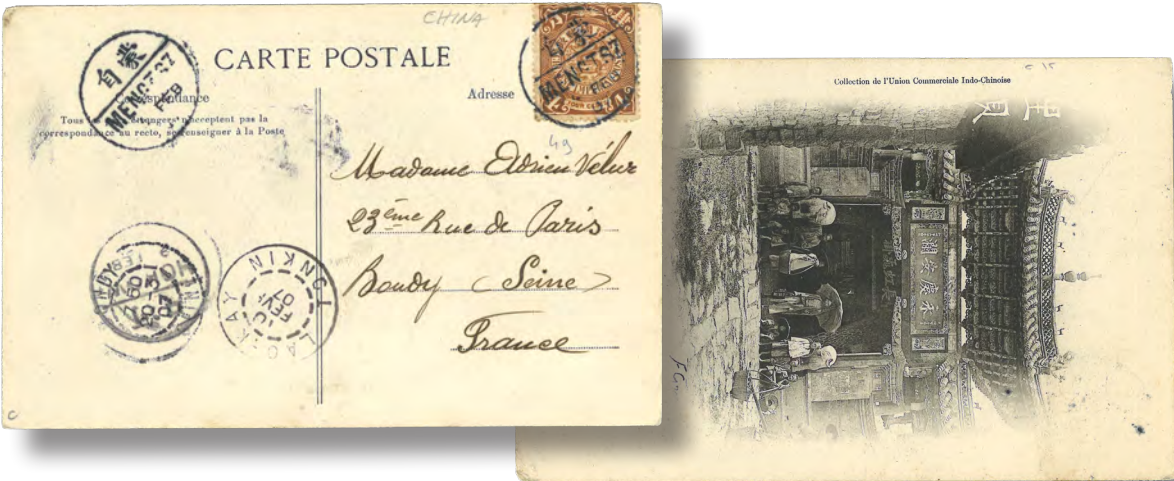 CHINA
CARTE POSTALE
自蒙
MENGTSZ
FEB
Correspondance
Adresse
Tous les étrangers n'acceptent pas la
correspondance au recto, se renseigner à la Poste
自蒙
MENGTSZ
FEB
49
Madame Adrien Vélur
23ème Rue de Paris
Bondy (Seine)
France
LAOKAY
TONKIN
10
FEVR
07
c 15
Collection de l'Union Commerciale Indo-Chinoise